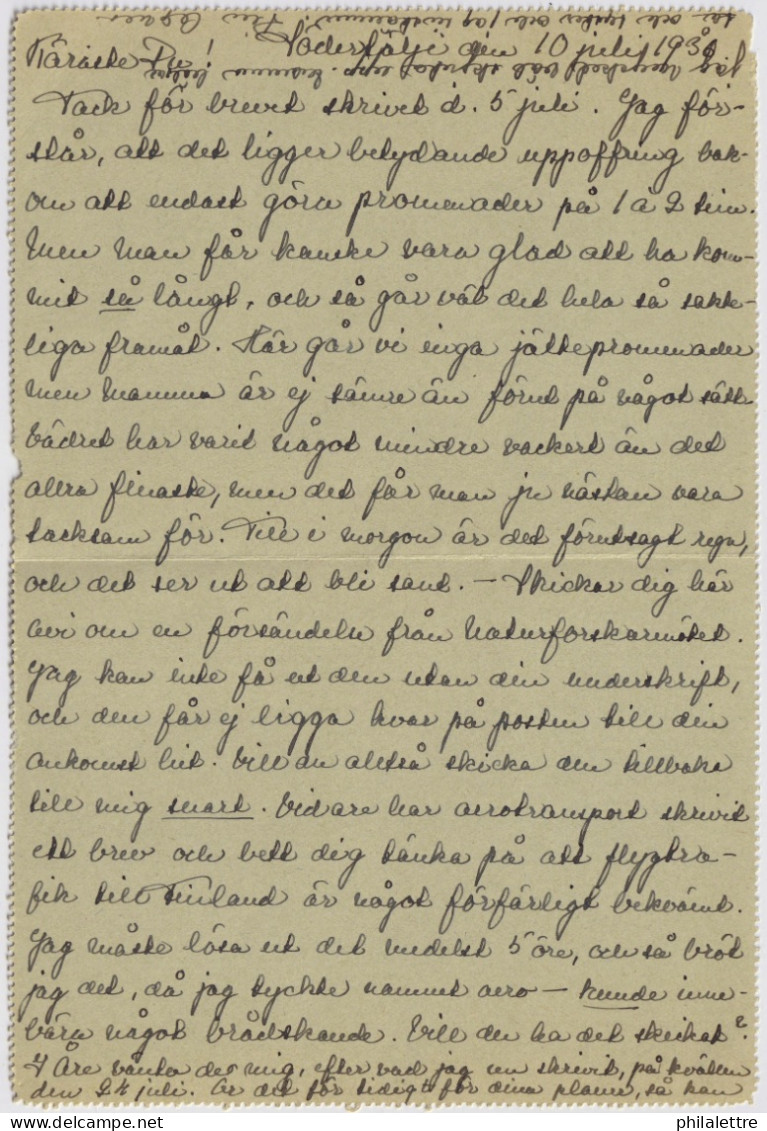 Södertälje den 10 juli 1936
Käraste Du!
Tack för brevet skrivet d. 5 juli. Jag för-
står, att det ligger betydande uppoffring bak-
om att endast göra promenader på 1 à 2 tim.
Men man får kanske vara glad att ha kom-
mit så långt, och så går väl det hela så sakte-
liga framåt. Här går vi inga jättepromenader
men mamma är ej sämre än förut på något sätt.
Vädret har varit något mindre vackert än det
allra finaste, men det får man ju nästan vara
tacksam för. Till i morgon är det förutsagt regn,
och det ser ut att bli sant. — Skickar dig här
avi om en försändelse från Naturforskarmötet.
Jag kan inte få ut den utan din underskrift,
och den får ej ligga kvar på posten till din
ankomst hit. Vill du alltså skicka den tillbaka
till mig snart. Vidare har aerotransport skrivit
ett brev och bett dig tänka på att flygtra-
fik till Finland är något förfärligt bekvämt.
Jag måste lösa ut det medelst 5 öre, och så bröt
jag det, då jag tyckte namnet aero — kunde inne-
bära något brådskande. Vill du ha det skickat?
Åre väntar de mig, efter vad jag nu skrivit, på kvällen
den 24 juli. Är det för tidigt för dina planer, så kan
jag upp. komma
så och tycker och jag Din Agnes
philatelettre